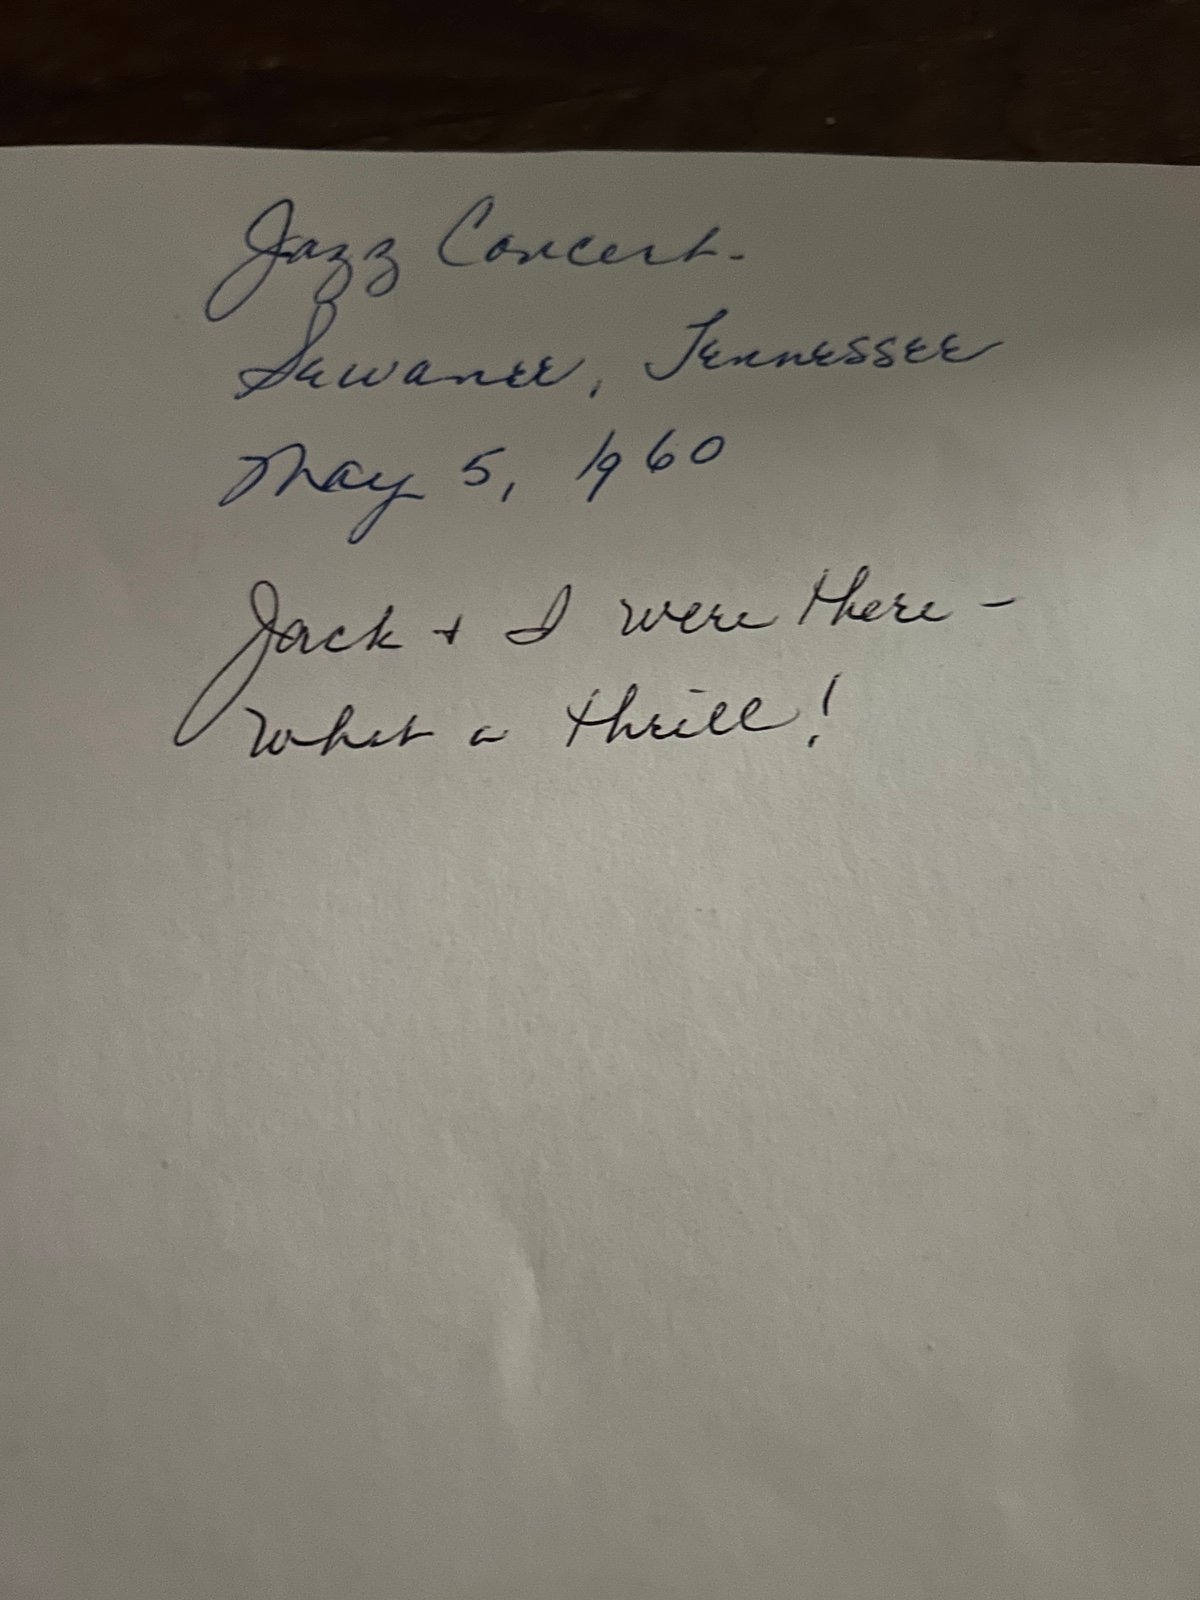 Jazz Concert.
Sewanee, Tennessee
May 5, 1960
Jack + I were there –
What a thrill!